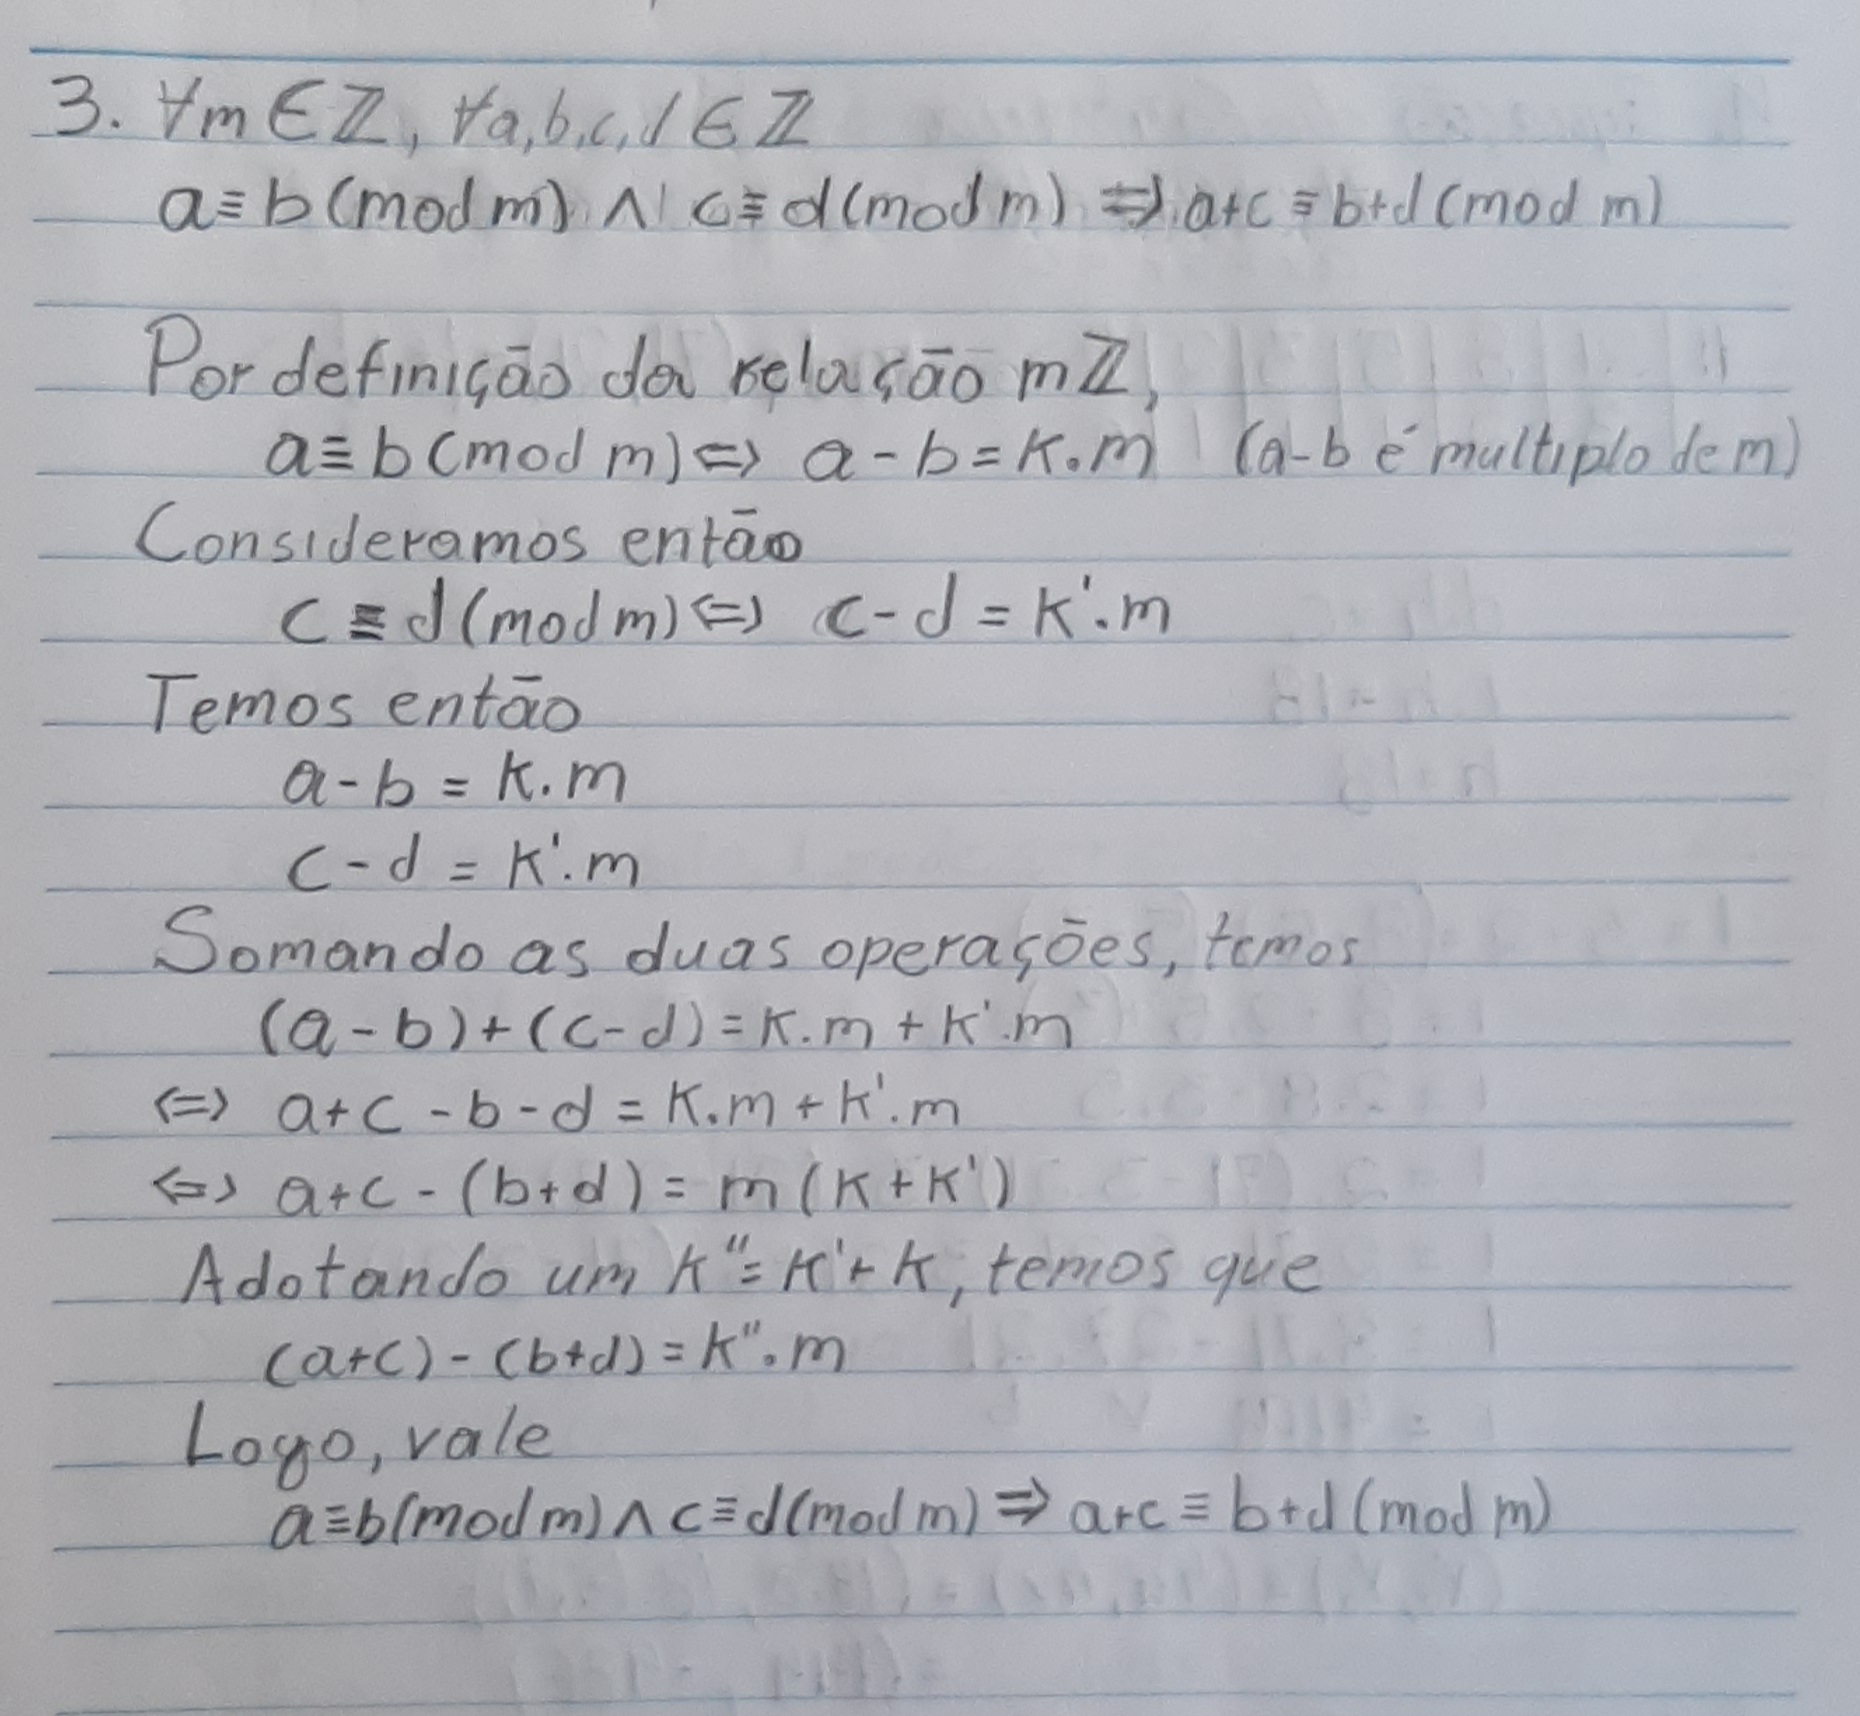 3. ∀m ∈ ℤ, ∀a,b,c,d ∈ ℤ
a ≡ b (mod m) ∧ c ≡ d (mod m) ⇒ a+c ≡ b+d (mod m)
Por definição da relação mℤ,
a ≡ b (mod m) ⇔ a - b = K.m (a-b é multiplo de m)
Consideramos então
c ≡ d (mod m) ⇔ c - d = K'.m
Temos então
a - b = K.m
c - d = K'.m
Somando as duas operações, temos
(a - b) + (c - d) = K.m + K'.m
⇔ a+c - b - d = K.m + K'.m
⇔ a+c - (b+d) = m (K + K')
Adotando um K" = K' + K, temos que
(a+c) - (b+d) = K".m
Logo, vale
a ≡ b (mod m) ∧ c ≡ d (mod m) ⇒ a+c ≡ b+d (mod m)